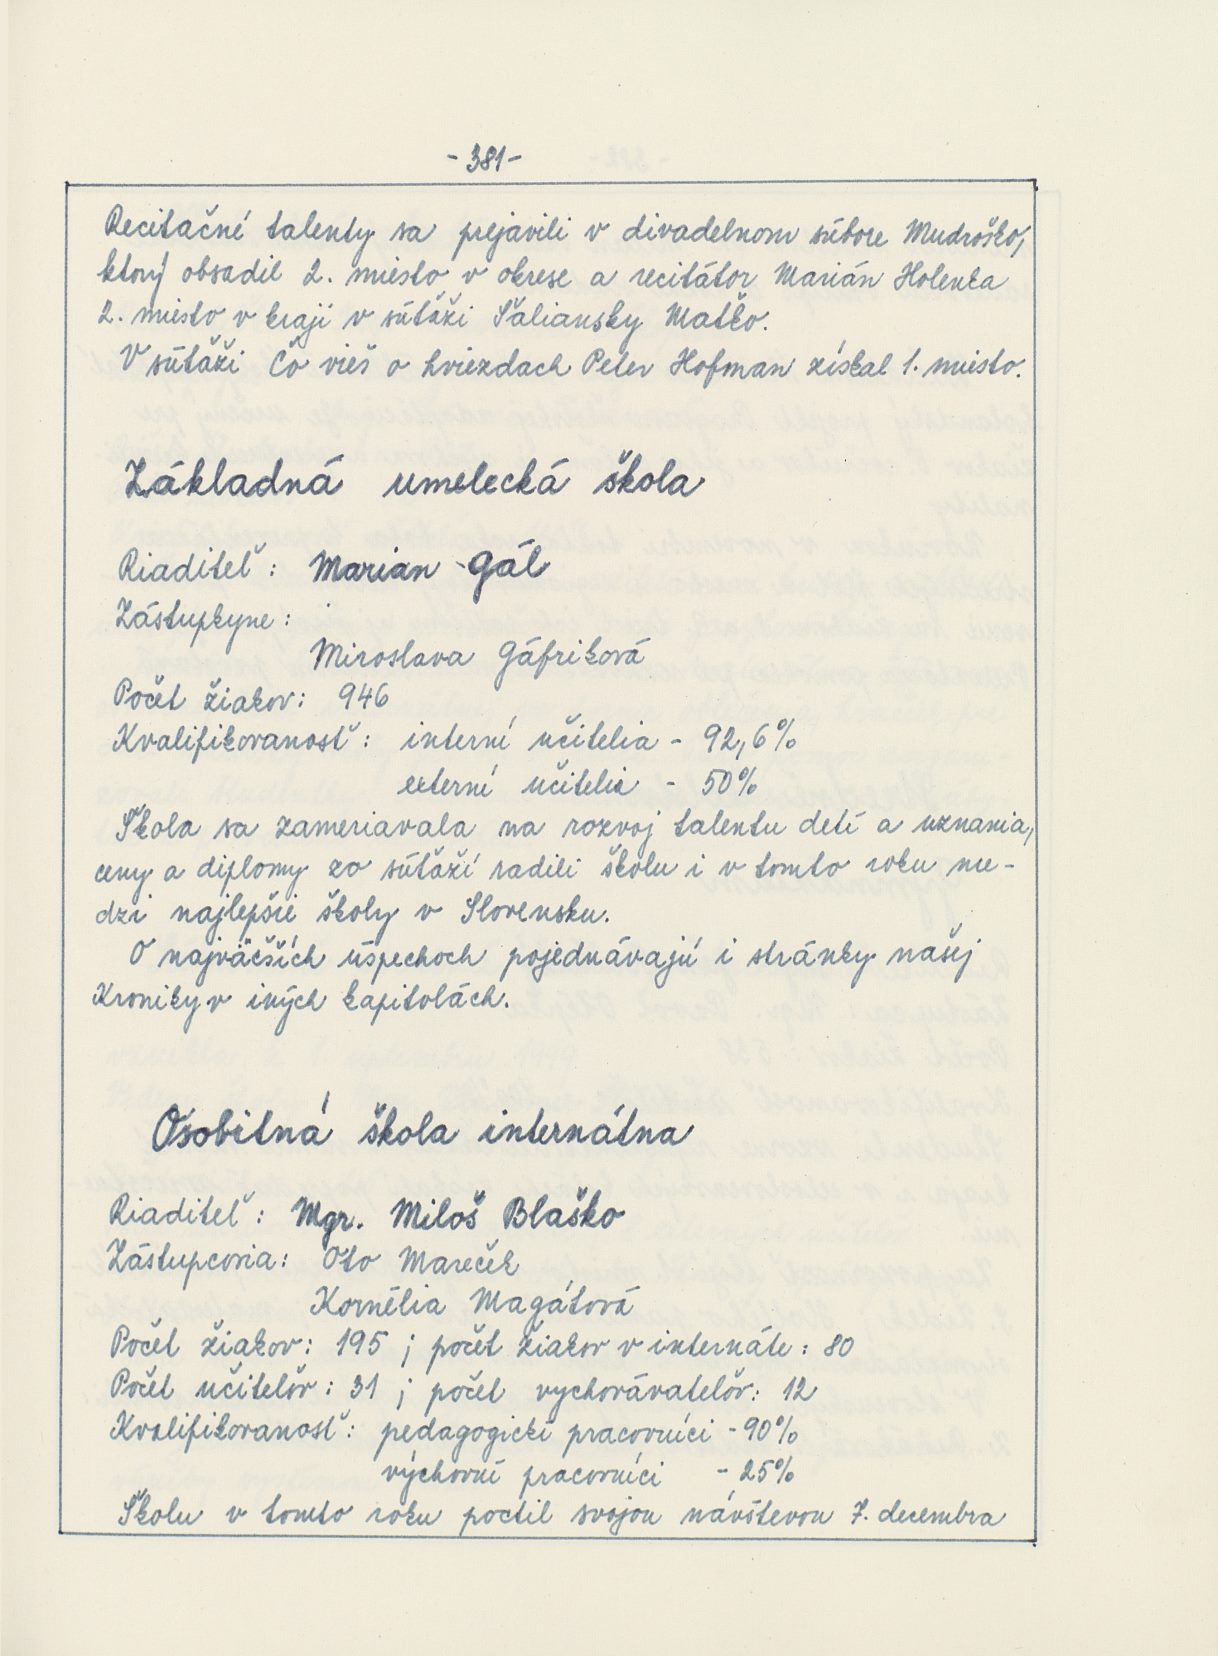 -381-
Recitačné talenty sa prejavili v divadelnom súbore Mudroško,
ktorý obsadil 2. miesto v okrese a recitátor Marián Holenka
2. miesto v kraji v súťaži Šaliansky Maťko.
V súťaži Čo vieš o hviezdach Peter Hofman získal 1. miesto.
Základná umelecká škola
Riaditeľ : Marian Gál
Zástupkyne :
Miroslava Gáfriková
Počet žiakov: 946
Kvalifikovanosť : interní učitelia - 92,6%
externí učitelia - 50%
Škola sa zameriavala na rozvoj talentu detí a uznania,
ceny a diplomy zo súťaží radili školu i v tomto roku me-
dzi najlepšie školy v Slovensku.
O najväčších úspechoch pojednávajú i stránky našej
Kroniky v iných kapitolách.
Osobitná škola internátna
Riaditeľ : Mgr. Miloš Blaško
Zástupcovia : Oto Mareček
Kornélia Magátová
Počet žiakov : 195 ; počet žiakov v internáte : 80
Počet učiteľov : 31 ; počet vychovávateľov : 12
Kvalifikovanosť : pedagogickí pracovníci - 90%
výchovní pracovníci - 25%
Školu v tomto roku poctil svojou návštevou 7. decembra